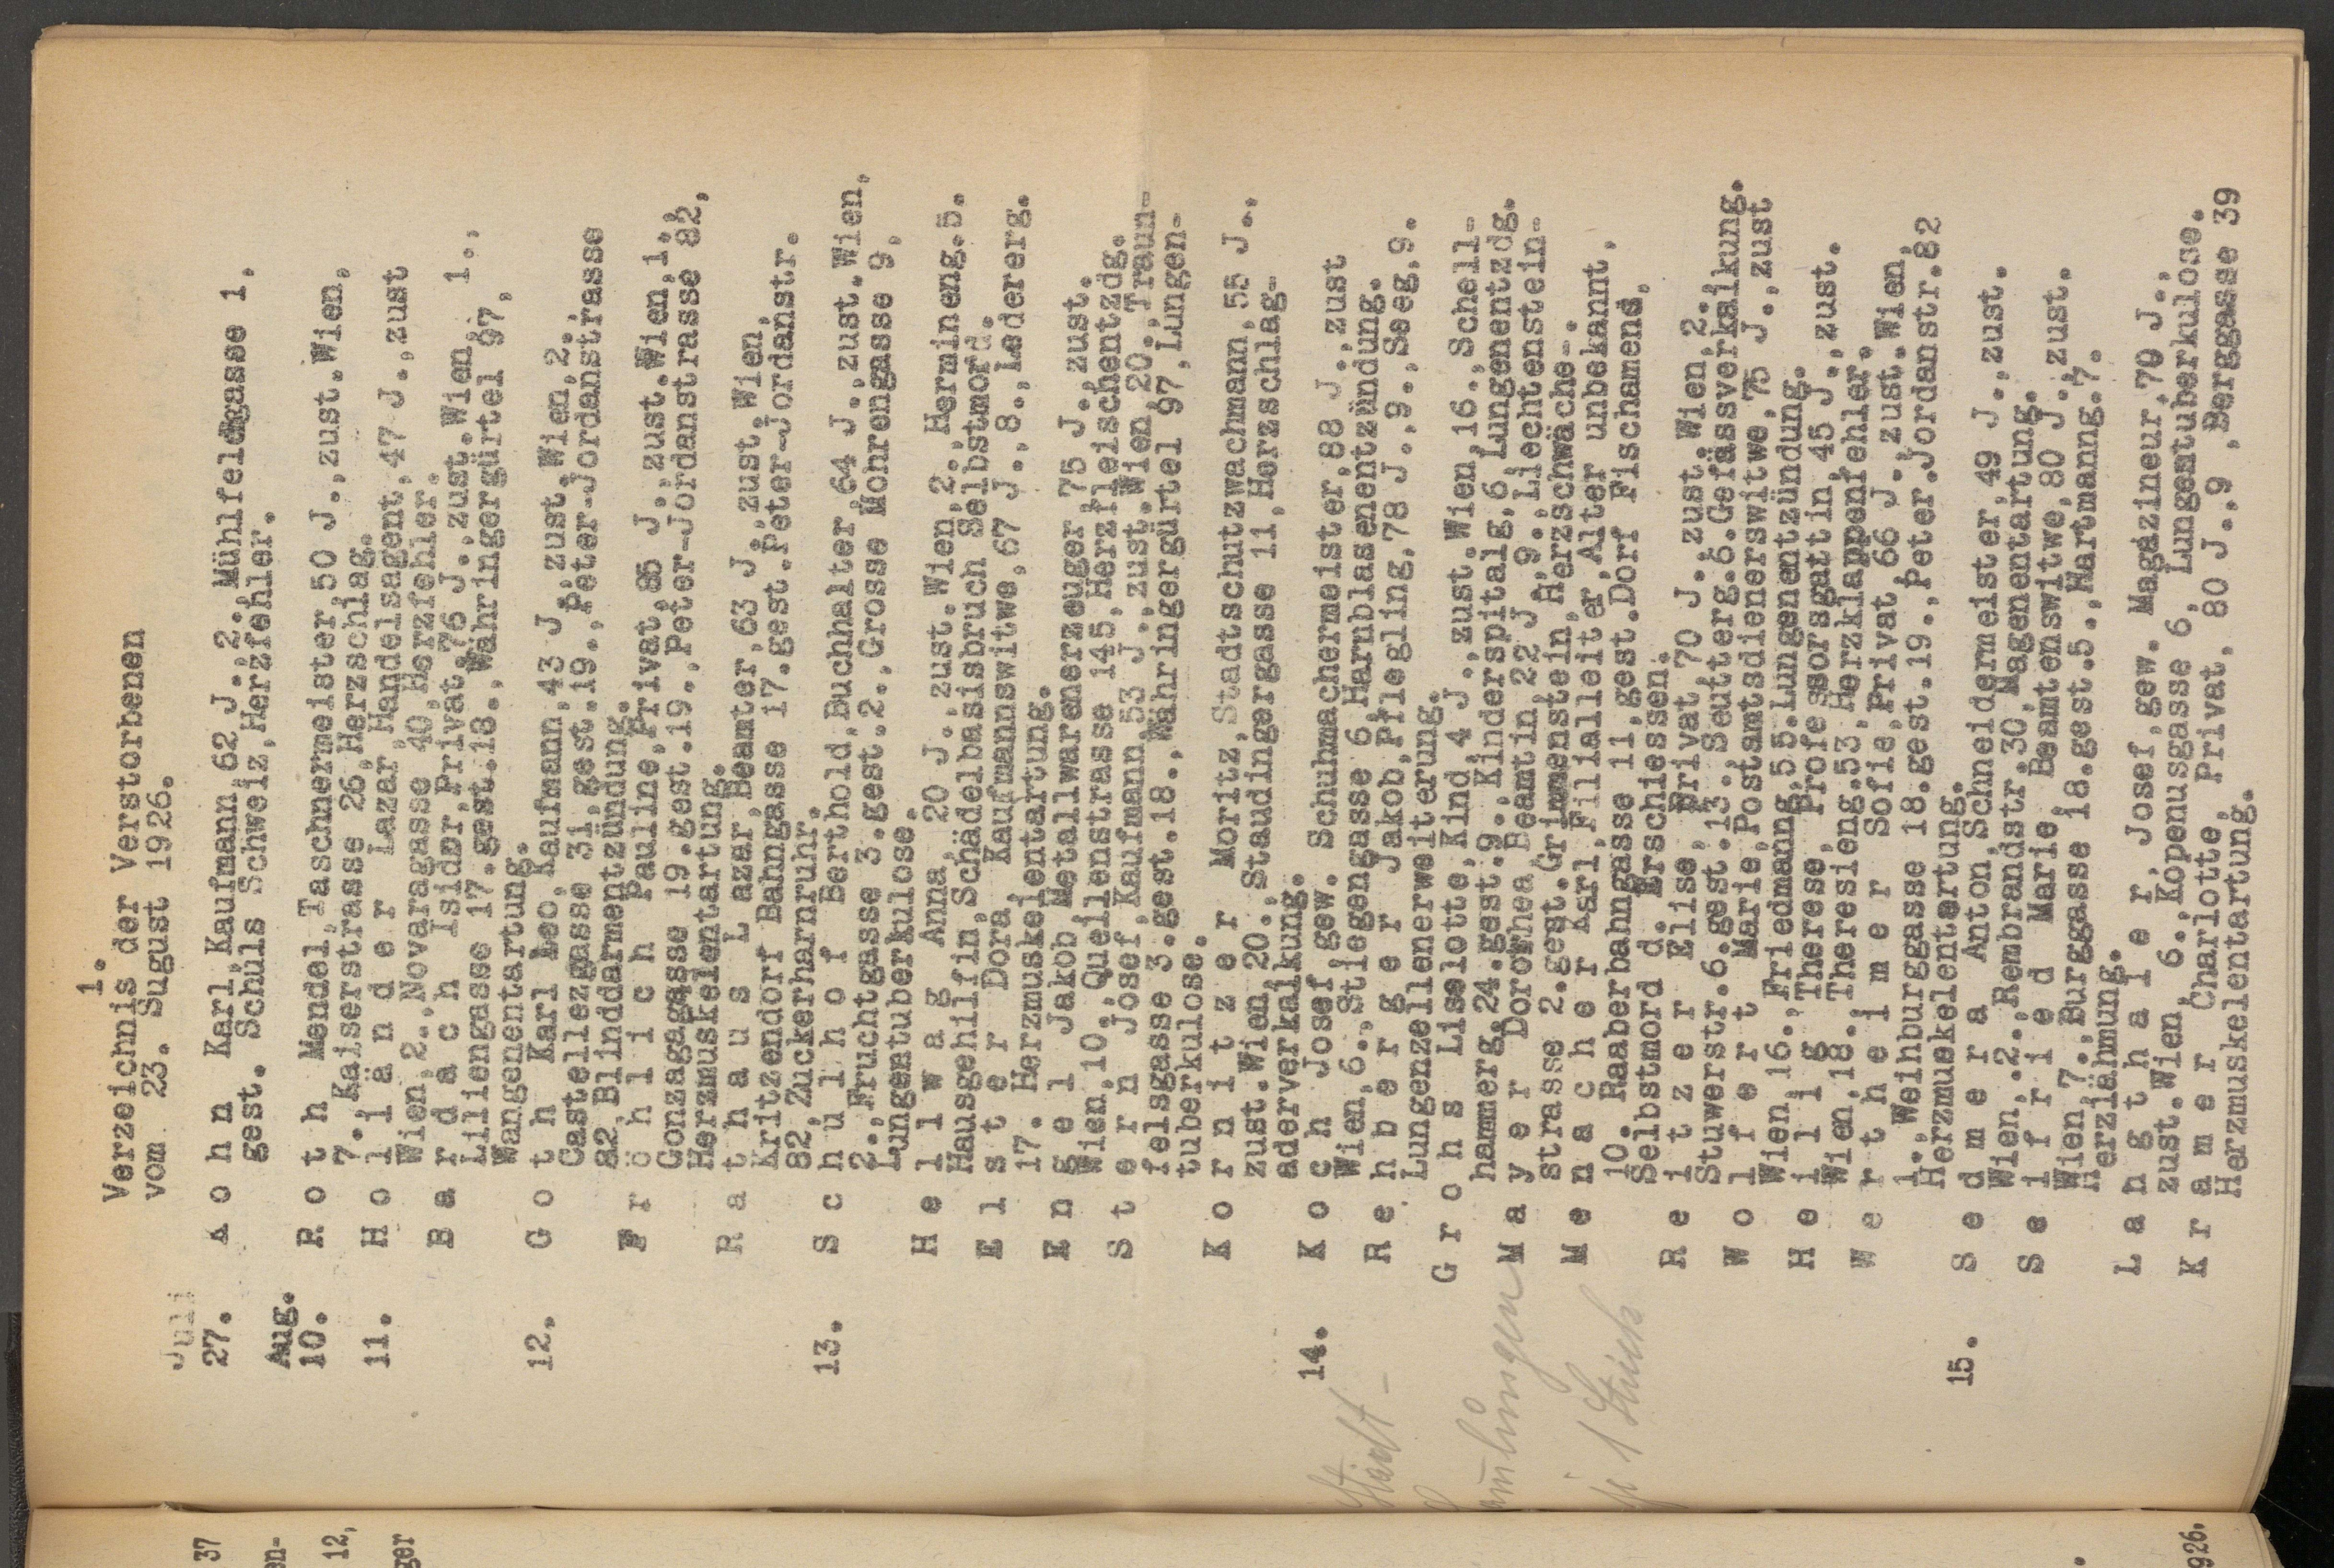 1.
Verzeichnis der Verstorbenen
vom 23. Sugust 1926.
Juli
27. K o h n Karl,Kaufmann,62 J.,2.,Mühlfeldgasse 1.
gest. Schuls Schweiz,Herzfehler.
Aug.
10. R o t h Mendel,Taschnermeister,50 J.,zust.Wien,
7., Kaiserstrasse 26,Herzschlag.
11. H o l l ä n d e r Lazar,Handelsagent,47 J.,zust
Wien,2..Novaragasse 40,Herzfehler.
B a r d a c h Isidor,Privat,76 J.,zust.Wien,1.,
Liliengasse 17.gest.18.,Währingergürtel 97,
Wangenentartung.
12. G o t h Karl Leo,Kaufmann,43 J.,zust.Wien,2.,
Castellezgasse 31,gest.19.,Peter-Jordanstrasse
82,Blinddarmentzündung.
F r ö h l i c h Pauline,Privat,85 J.,zust.Wien,1.,
Gonzagagasse 19.gest.19.,Peter-Jordanstrasse 82,
Herzmuskelentartung.
R a t h a u s L azar,Beamter,63 J.,zust.Wien,
Kritzendorf Bahngasse 17.gest.Peter-Jordanstr.
82,Zuckerharnruhr.
13. S c h u l h o f Berthold,Buchhalter,64 J.,zust.Wien,
2.,Fruchtgasse 3.gest.2.,Grosse Mohrengasse 9,
Lungentuberkulose.
H e l l w a g Anna, 20 J.,zust.Wien,2.,Hermineng.5.
Hausgehilfin,Schädelbasisbruch Selbstmord.
E l s t e r Dora, Kaufmannswitwe,67 J.,8.,Lederer­g.
17. Herzmuskelentartung.
E n g e l Jakob,Metallwarenerzeuger,75 J.,zust.
Wien,10.,Quellenstrasse 145,Herzfleischentzdg.
S t e r n Josef,Kaufmann,53 J.,zust.Wien,20.,Traun-
felsgasse 3.gest.18.,Währingergürtel 97,Lungen-
tuberkulose.
K o r n i t z e r Moritz,Stadtschutzwachmann,55 J.,
zust.Wien,20.,Staudingergasse 11,Herzschlag-
aderverkalkung.
14. K o c h Josef,gew. Schuhmachermeister,88 J.,zust
Wien,6.,Stiegengasse 6,Harnblasenentzündung.
R e h b e r g e r Jakob,Pflegling,78 J.,9.,Seeg.9.
Lungenzellenerweiterung.
G r o h s Liselotte,Kind,4 J.,zust.Wien,16.,Schell-
hammerg.24.gest.9.,Kinderspitalg,6,Lungenentzdg.
M a y e r Dorothea Beamtin,22 J.,9.,Liechtenstein-
strasse 2.gest.Grimmenstein,Herzschwäche-.
M e n a c h e r Karl,Filialleiter,Alter unbekannt,
10. Raaberbahngasse 11,gest.Dorf Fischamend,
Selbstmord d. Erschiessen.
R e i t z e r Elise, Privat,70 J.,zust.Wien,2.,
Stuwerstr.6.gest.13.,Seutterg.6.Gefässverkalkung.
W o l f e r t Marie,Postamtsdienerswitwe,75 J.,zust
Wien,16.,Friedmanng,55.Lungenentzündung.
H e i l i g Therese, Professorsgattin,45 J.,zust.
Wien,18., Theresieng.53,Herzklappenfehler.
W e r t h e i m e r Sofie,Privat,66 J.,zust.Wien,
1.,Weihburggasse 18.gest.19.,Peter.Jordanstr.82
Herzmuskelentartung.
15. S e d m e r a Anton,Schneidermeister,49 J.,zust.
Wien,.2.,Rembrandstr.30,Magenentartung.
S e i f r i e d Marie, Beamtenswitwe,80 J.,zust.
Wien,7.,Burggasse 18.gest.5.,Hartmanng.7.
Herzlähmung.
L a n g t h a l e r, Josef,gew. Magazineur,70 J.,
zust.Wien 6.,Kopenusgasse 6, Lungentuberkulose.
K r a m e r Charlotte, Privat, 80 J.,9 ,Berggasse 39
Herzmuskelentartung.
Stadt-
37
en-
12,
ger
926.